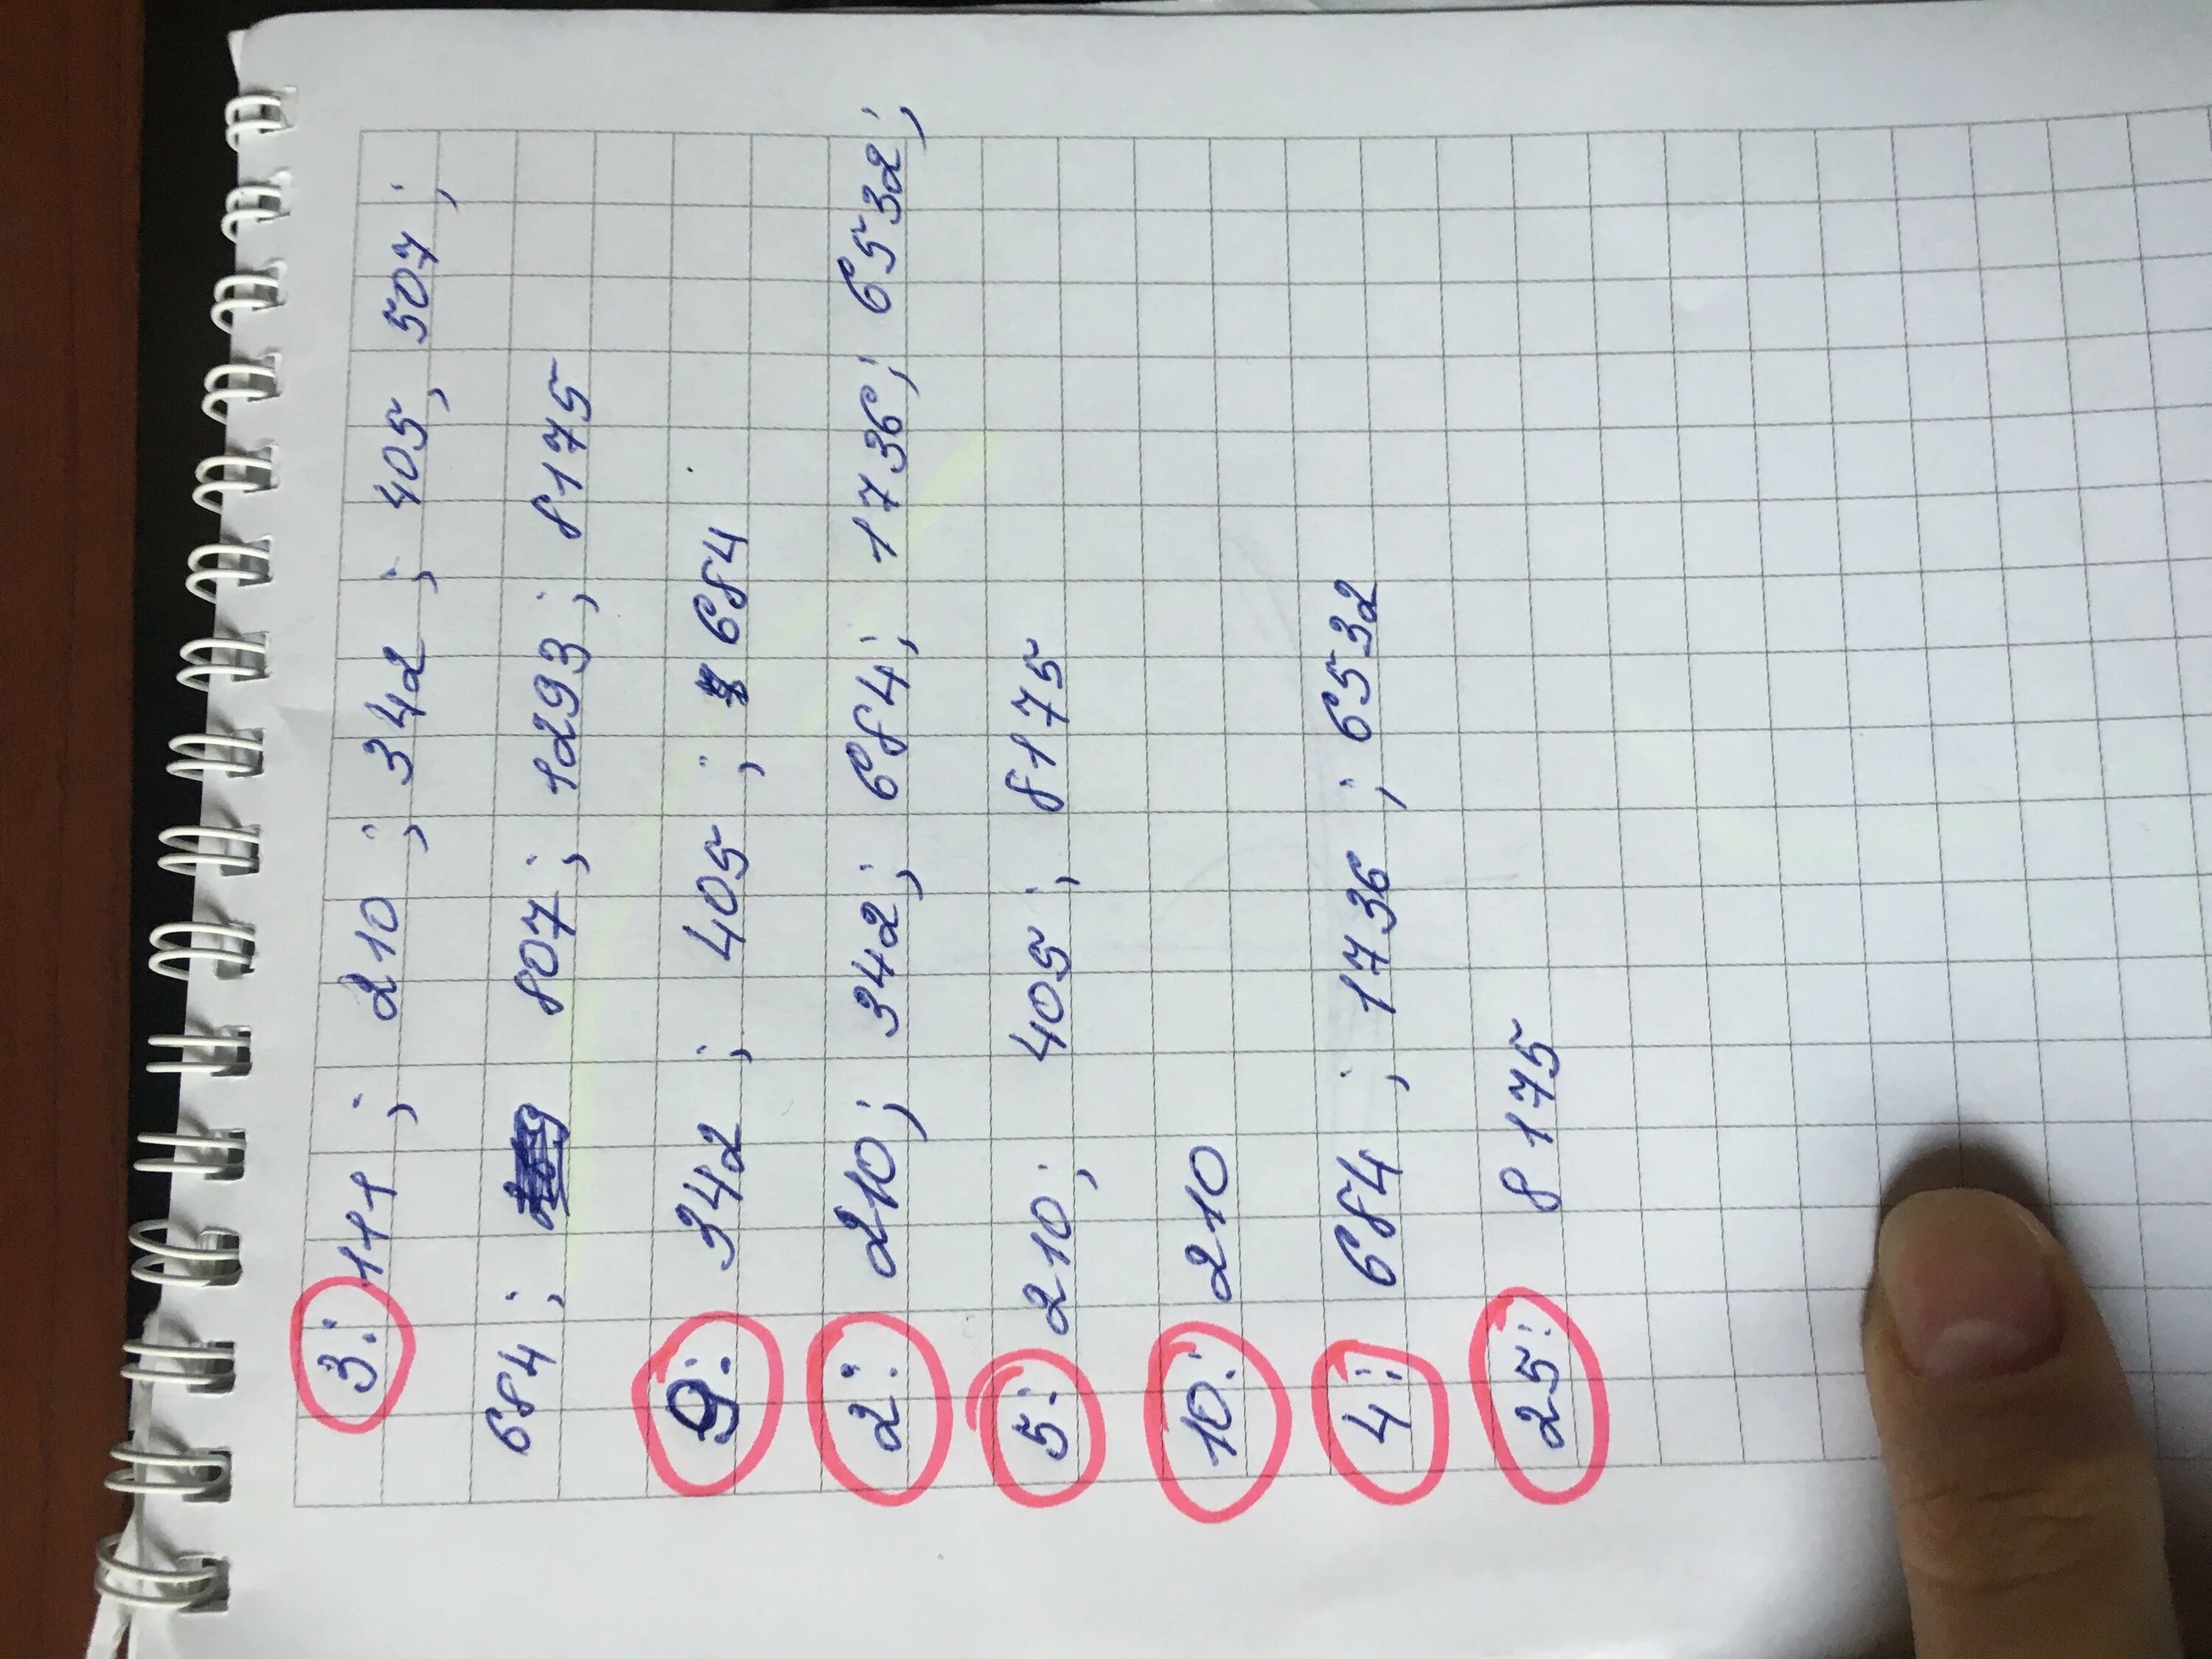 3: 111; 210; 342; 405, 507;
684; 807; 1293; 8175
9: 342; 405; 684
2: 210; 342; 684; 1736; 6532;
5: 210; 405; 8175
10: 210
4: 684; 1736; 6532
25: 8175